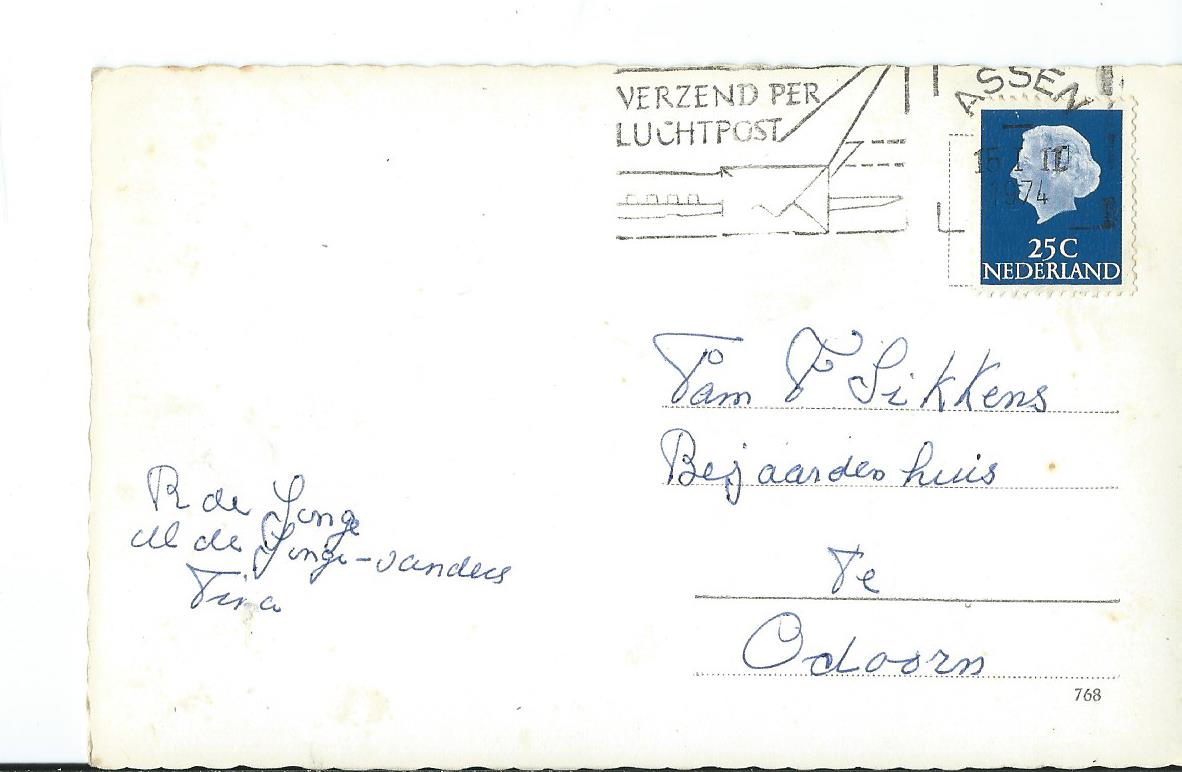 VERZEND PER
LUCHTPOST
ASSEN
1974
25C
NEDERLAND
Fam F Sikkens
Bejaardenhuis
Te
Odoorn
R de Jonge
M de Jonge-
Tina
768